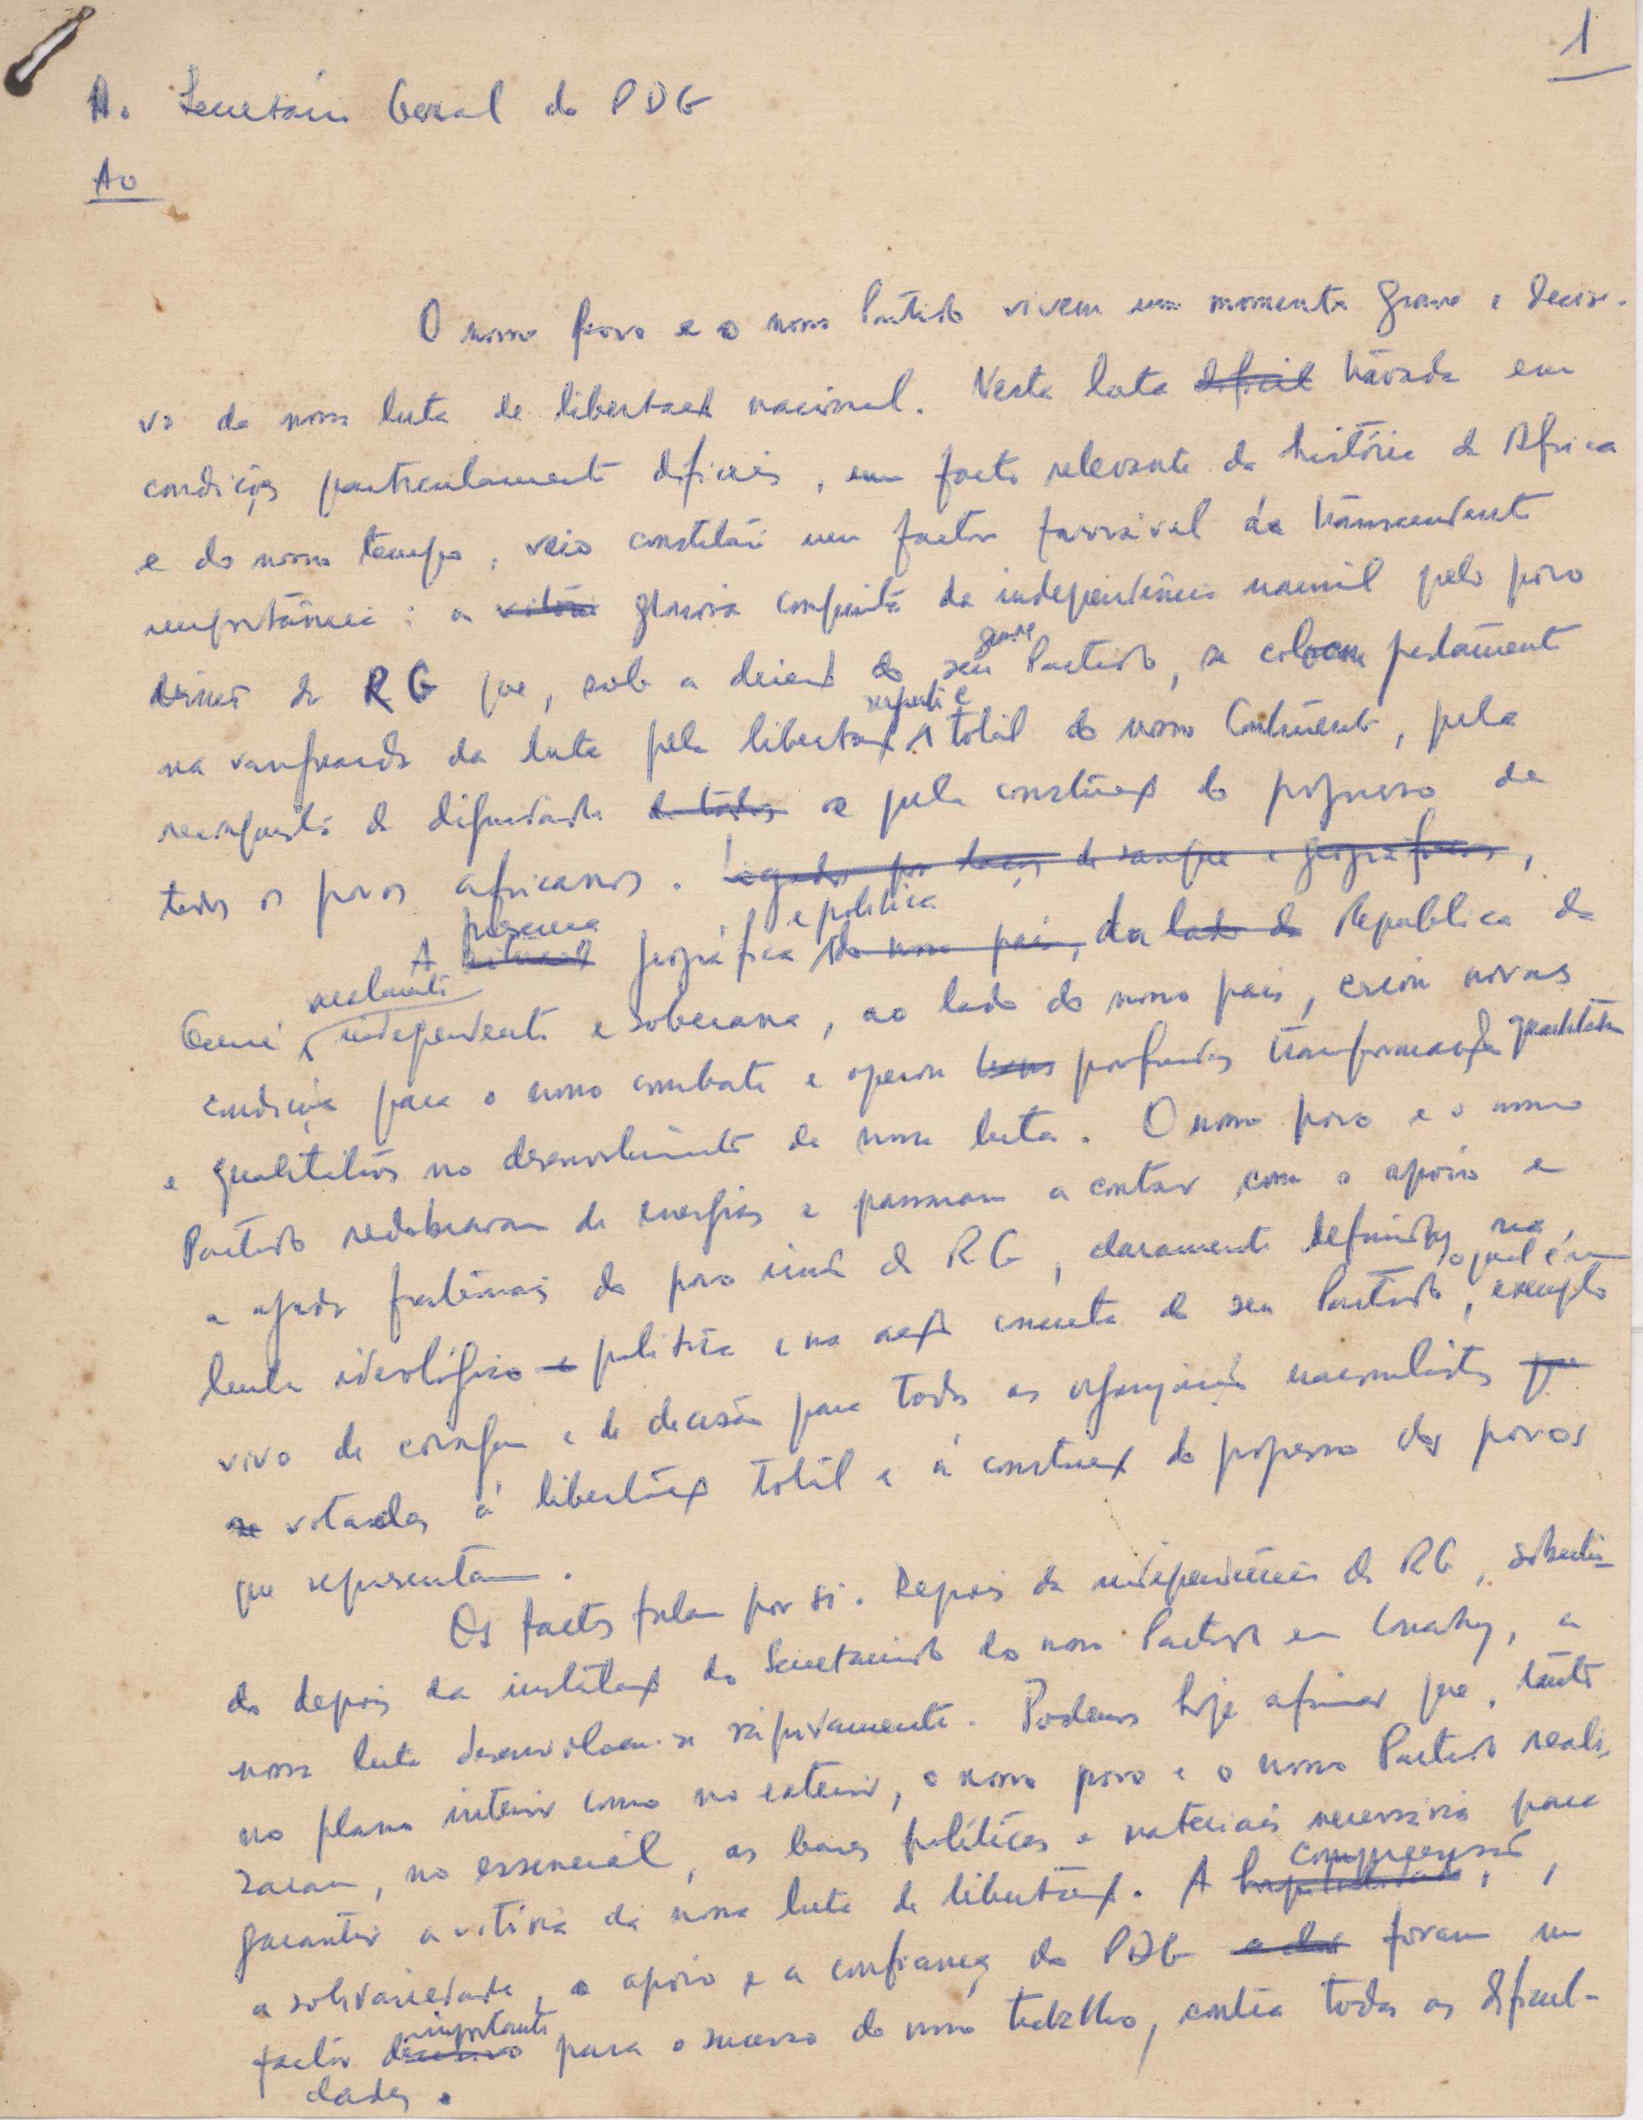 1
Ao Secretário Geral do PDG
Ao
O nosso povo e o nosso Partido vivem um momento grave e decisi-
vo da nossa luta de libertação nacional. Nesta luta difícil travada em
condições particularmente difíceis, um facto relevante da história da Africa
e do nosso tempo, veio constituir um factor favorável de transcendente
importância: a vitória gloriosa conquista da independência nacional pelo povo
irmão da RG que, sob a direcção do seu grande Partido, se colocou
na vanguarda da luta pela libertação e total do nosso Continente, pela
reconquista da dignidade de todos e pela construção do progresso de
todos os povos africanos. Ligados por laços de sangue e geográficos,
A situação presença geográfica e politica do nosso país, da lado da Republica da
Guiné realmente independente e soberana, ao lado do nosso país, criou novas
condições para o nosso combate e operou profundas transformações quantitativas
e qualitativas no desenvolvimento da nossa luta. O nosso povo e o nosso
Partido redobraram de energias e passaram a contar com o apoio e
a ajuda fraternais do povo irmão da RG, claramente definidos na
linha ideológico e politica e na acção concreta do seu Partido, o qual é um exemplo
vivo de coragem e de decisão para todas as organizações nacionalistas que
se votadas à libertação total e à construção do progresso dos povos
que representam.
Os factos falam por si. Depois da independência da RG, sobretu-
do depois da instalação do Secretariado do nosso Partido em Conakry, a
nossa luta desenvolveu-se rapidamente. Podemos hoje afirmar que, tanto
no plano interior como no exterior, o nosso povo e o nosso Partido reali-
zaram, no essencial, as bases políticas e materiais necessárias para
garantir a vitória da nossa luta de libertação. A hospitalidade, compreensão,
a solidariedade, o apoio e a confiança do PDG foram um
factor decisivo importante para o sucesso do nosso trabalho, contra todas as dificul-
dades.